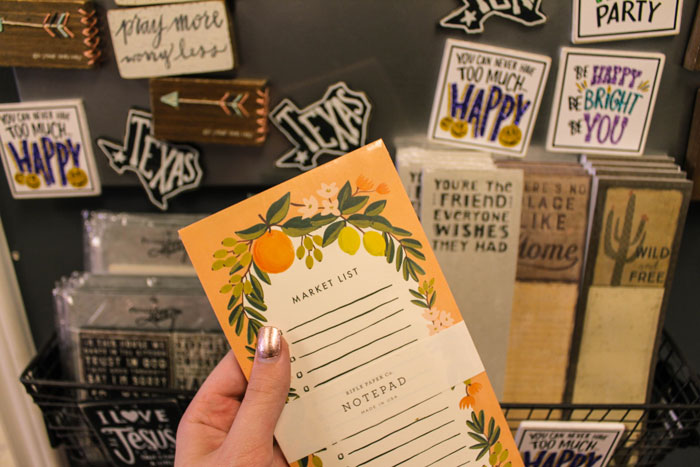 pray more
worry less
TEXAS
TEXAS
YOU CAN NEVER HAVE
TOO MUCH...
HAPPY
YOU CAN NEVER HAVE
TOO MUCH...
HAPPY
PARTY
BE HAPPY
BE BRIGHT
BE YOU
YOU'RE THE
FRIEND
EVERYONE
WISHES
THEY HAD
THERE'S NO
PLACE
LIKE
Home
WILD
and
FREE
MARKET LIST
RIFLE PAPER Co.
NOTEPAD
MADE IN USA
I LOVE
Jesus
YOU CAN NEVER HAVE
TOO MUCH...